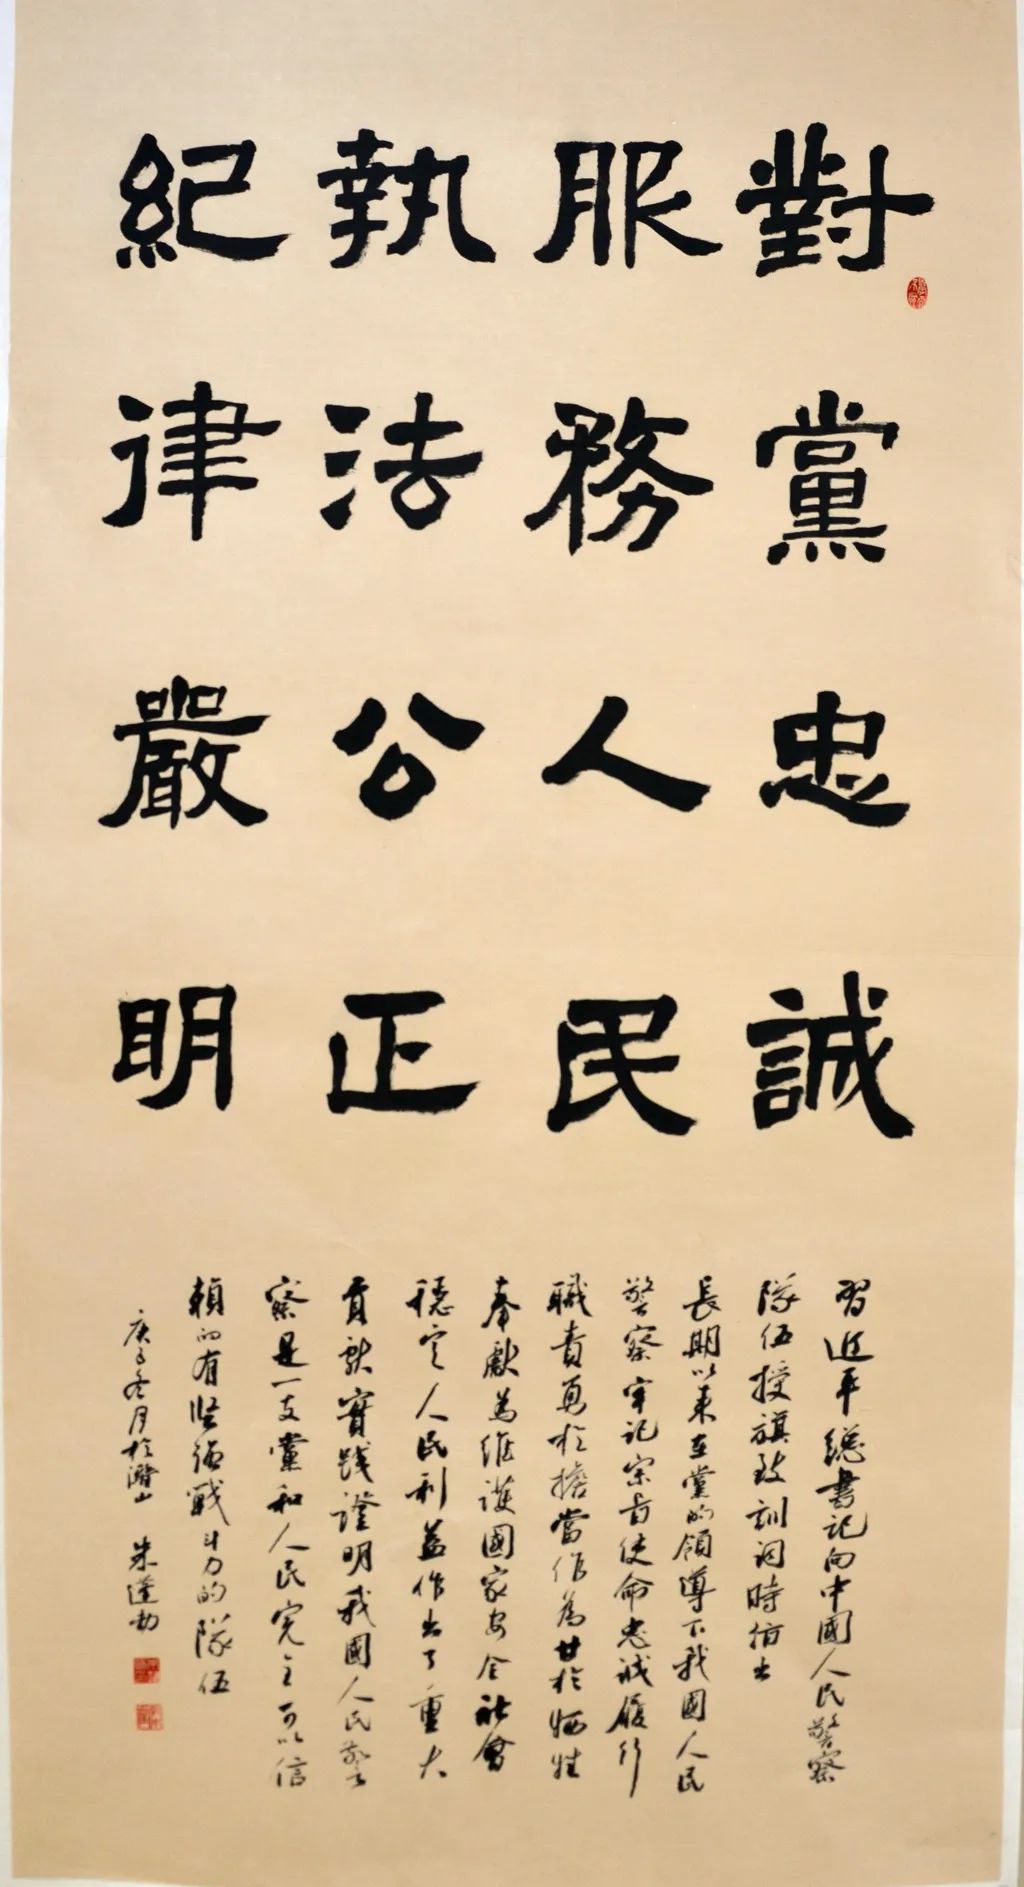 對黨忠誠
服務人民
執法公正
紀律嚴明
習近平總書記向中國人民警察
隊伍授旗致訓詞時指出
長期以来在黨的領導下我國人民
警察牢記宗旨使命忠誠履行
職責勇於擔當作為甘於牺牲
奉獻為維護國家安全社會
穩定人民利益作出了重大
貢献實踐證明我國人民警
察是一支黨和人民完全可以信
賴的有坚强戰斗力的隊伍
庚子冬月於潛山 朱達勃